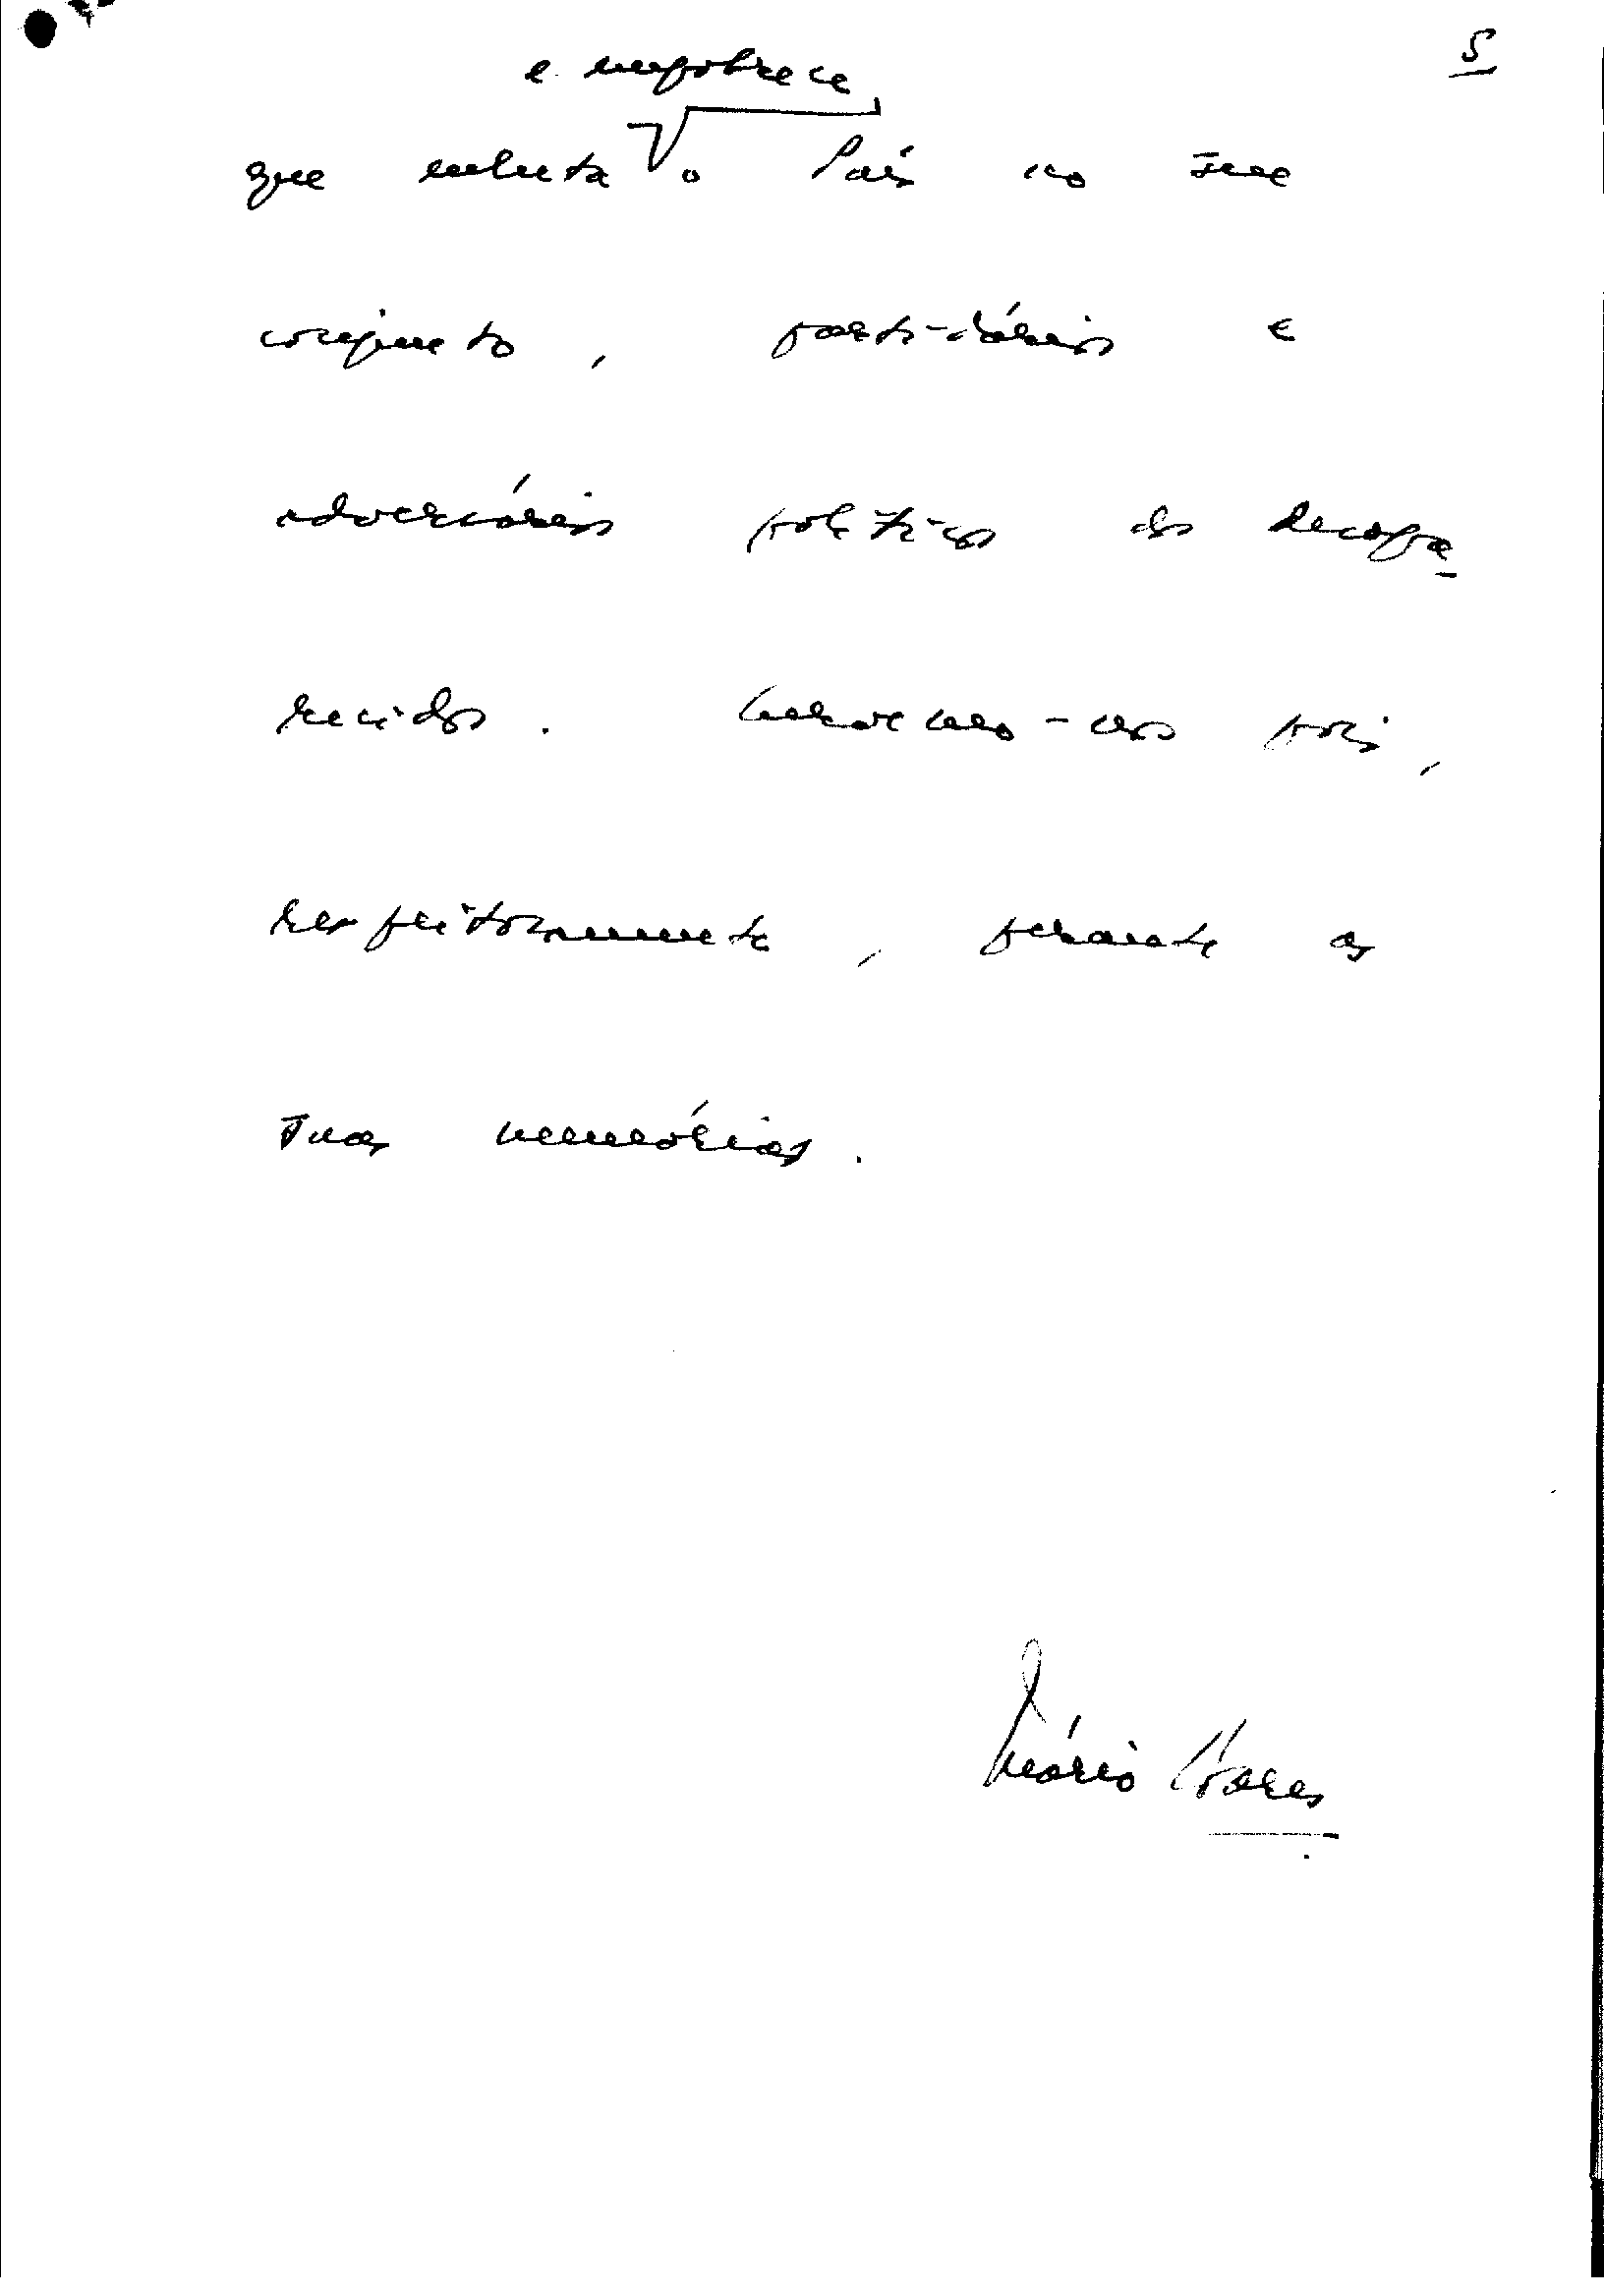 5
e empobrece
que enluta o País no seu
conjunto, partidários e
adversários políticos dos desapa
recidos. Curvemo-nos pois,
respeitosamente, perante as
suas memórias.
Mário Soares